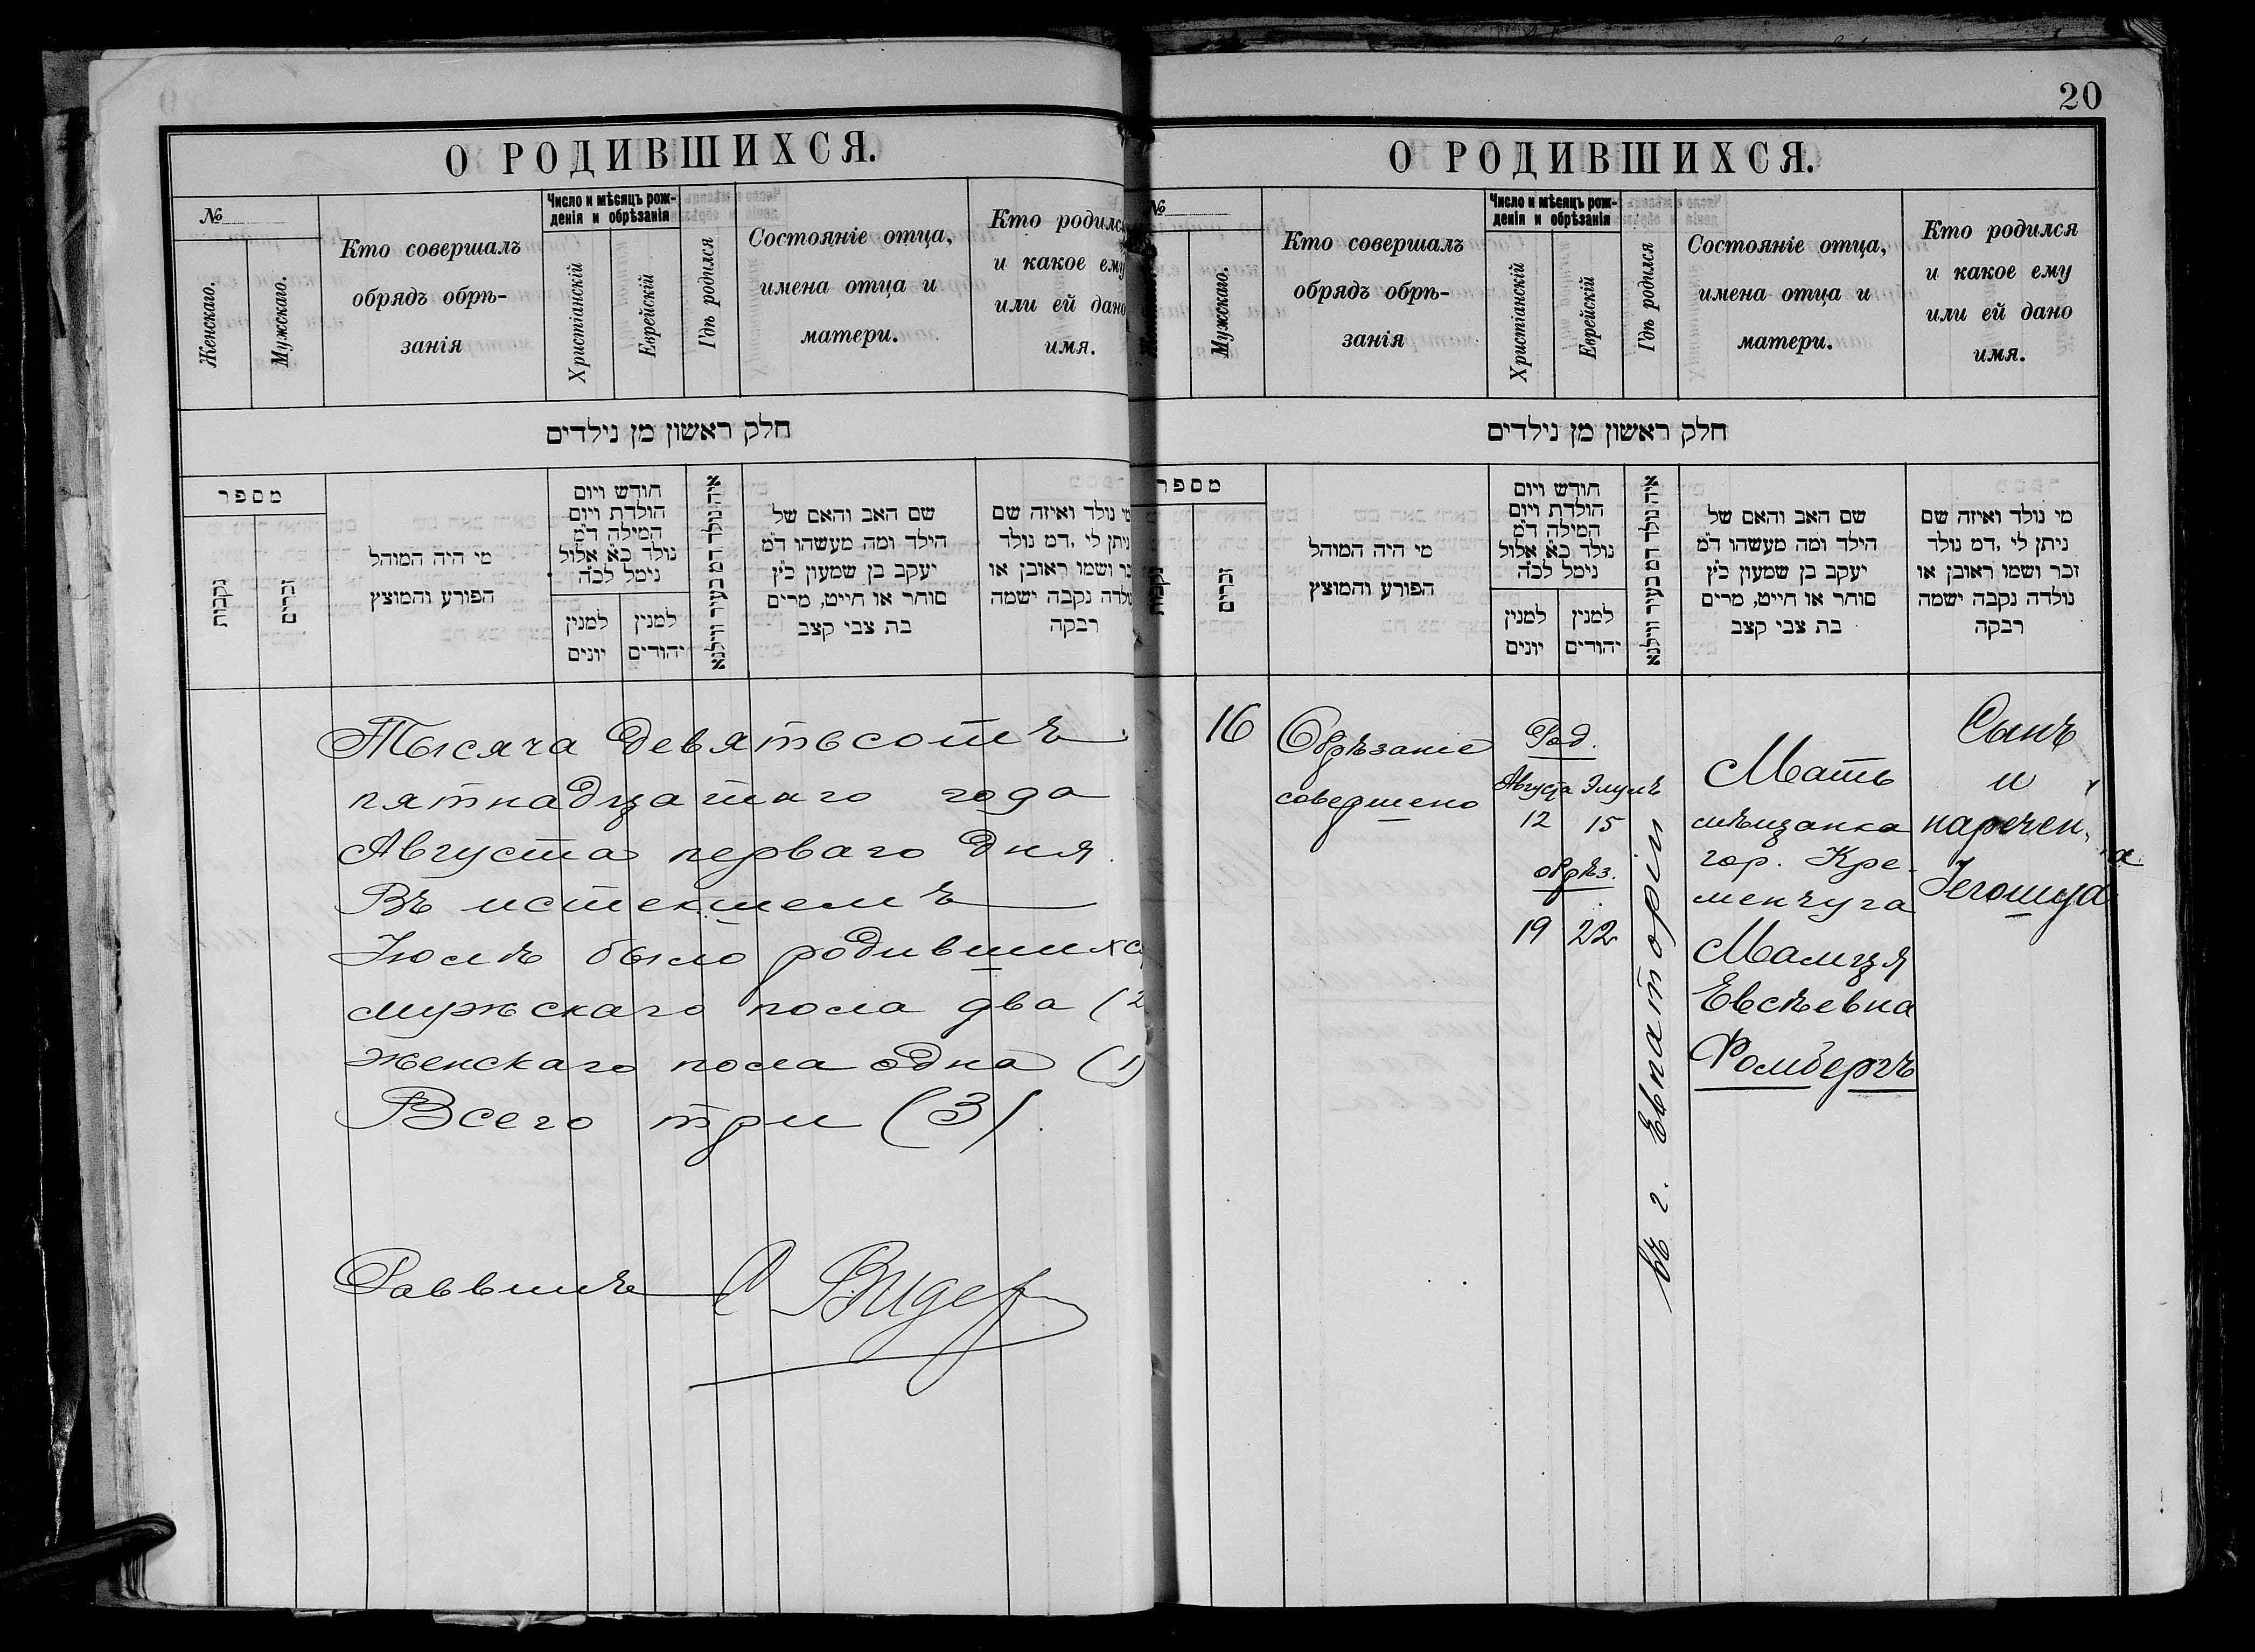 О РОДИВШИХСЯ.
№
Женскаго.
Мужскаго.
Кто совершалъ
обрядъ обрѣ-
занія
Число и мѣсяцъ рож-
денія и обрѣзанія
Христіанскій
Еврейскій
Гдѣ родился
Состояніе отца,
имена отца и
матери.
Кто родился
и какое ему
или ей дано
имя.
חלק ראשון מן נילדים
מספר
נקבות
זכרים
מי היה המוהל
הפורע והמוצץ
חודש ויום
הולדת ויום
המילה ד״מ
נולד כ״א אלול
נימל לכ״ה
למנין
יונים
למנין
יהודים
איה נולד דמ בעיר ווילנא
שם האב והאם של
הילד ומה מעשהו ד״מ
יעקב בן שמעון כ״ץ
סוחר או חייט, מרים
בת צבי קצב
מי נולד ואיזה שם
ניתן לי ,דמ נולד
זכר ושמו ראובן או
נולדה נקבה ישמה
רבקה
Тысяча девятьсотъ
пятнадцатаго года
Августа перваго дня.
Въ истекшемъ
Іюлѣ было родившихся
мужскаго пола два (2
женскаго пола одна (1)
Всего три (3).
Раввинъ
Видер
20
О РОДИВШИХСЯ.
№
Мужскаго.
Кто совершалъ
обрядъ обрѣ-
занія
Число и мѣсяцъ рож-
денія и обрѣзанія
Христіанскій
Еврейскій
Гдѣ родился
Состояніе отца,
имена отца и
матери.
Кто родился
и какое ему
или ей дано
имя.
חלק ראשון מן נילדים
מספר
נקבות
זכרים
מי היה המוהל
הפורע והמוצץ
חודש ויום
הולדת ויום
המילה ד״מ
נולד כ״א אלול
נימל לכ״ה
למנין
יונים
למנין
יהודים
איה נולד דמ בעיר ווילנא
שם האב והאם של
הילד ומה מעשהו ד״מ
יעקב בן שמעון כ״ץ
סוחר או חייט, מרים
בת צבי קצב
מי נולד ואיזה שם
ניתן לי ,דמ נולד
זכר ושמו ראובן או
נולדה נקבה ישמה
רבקה
16
Обрѣзаніе
совершено
Род.
Августа Элулъ
12 15
обрѣз.
19 22
въ г. Евпаторіи
Мать
мѣщанка
гор. Кре-
менчуга
Малця
Евсѣевна
Ромбергъ
Сынъ
и
наречен,
Іегошуа